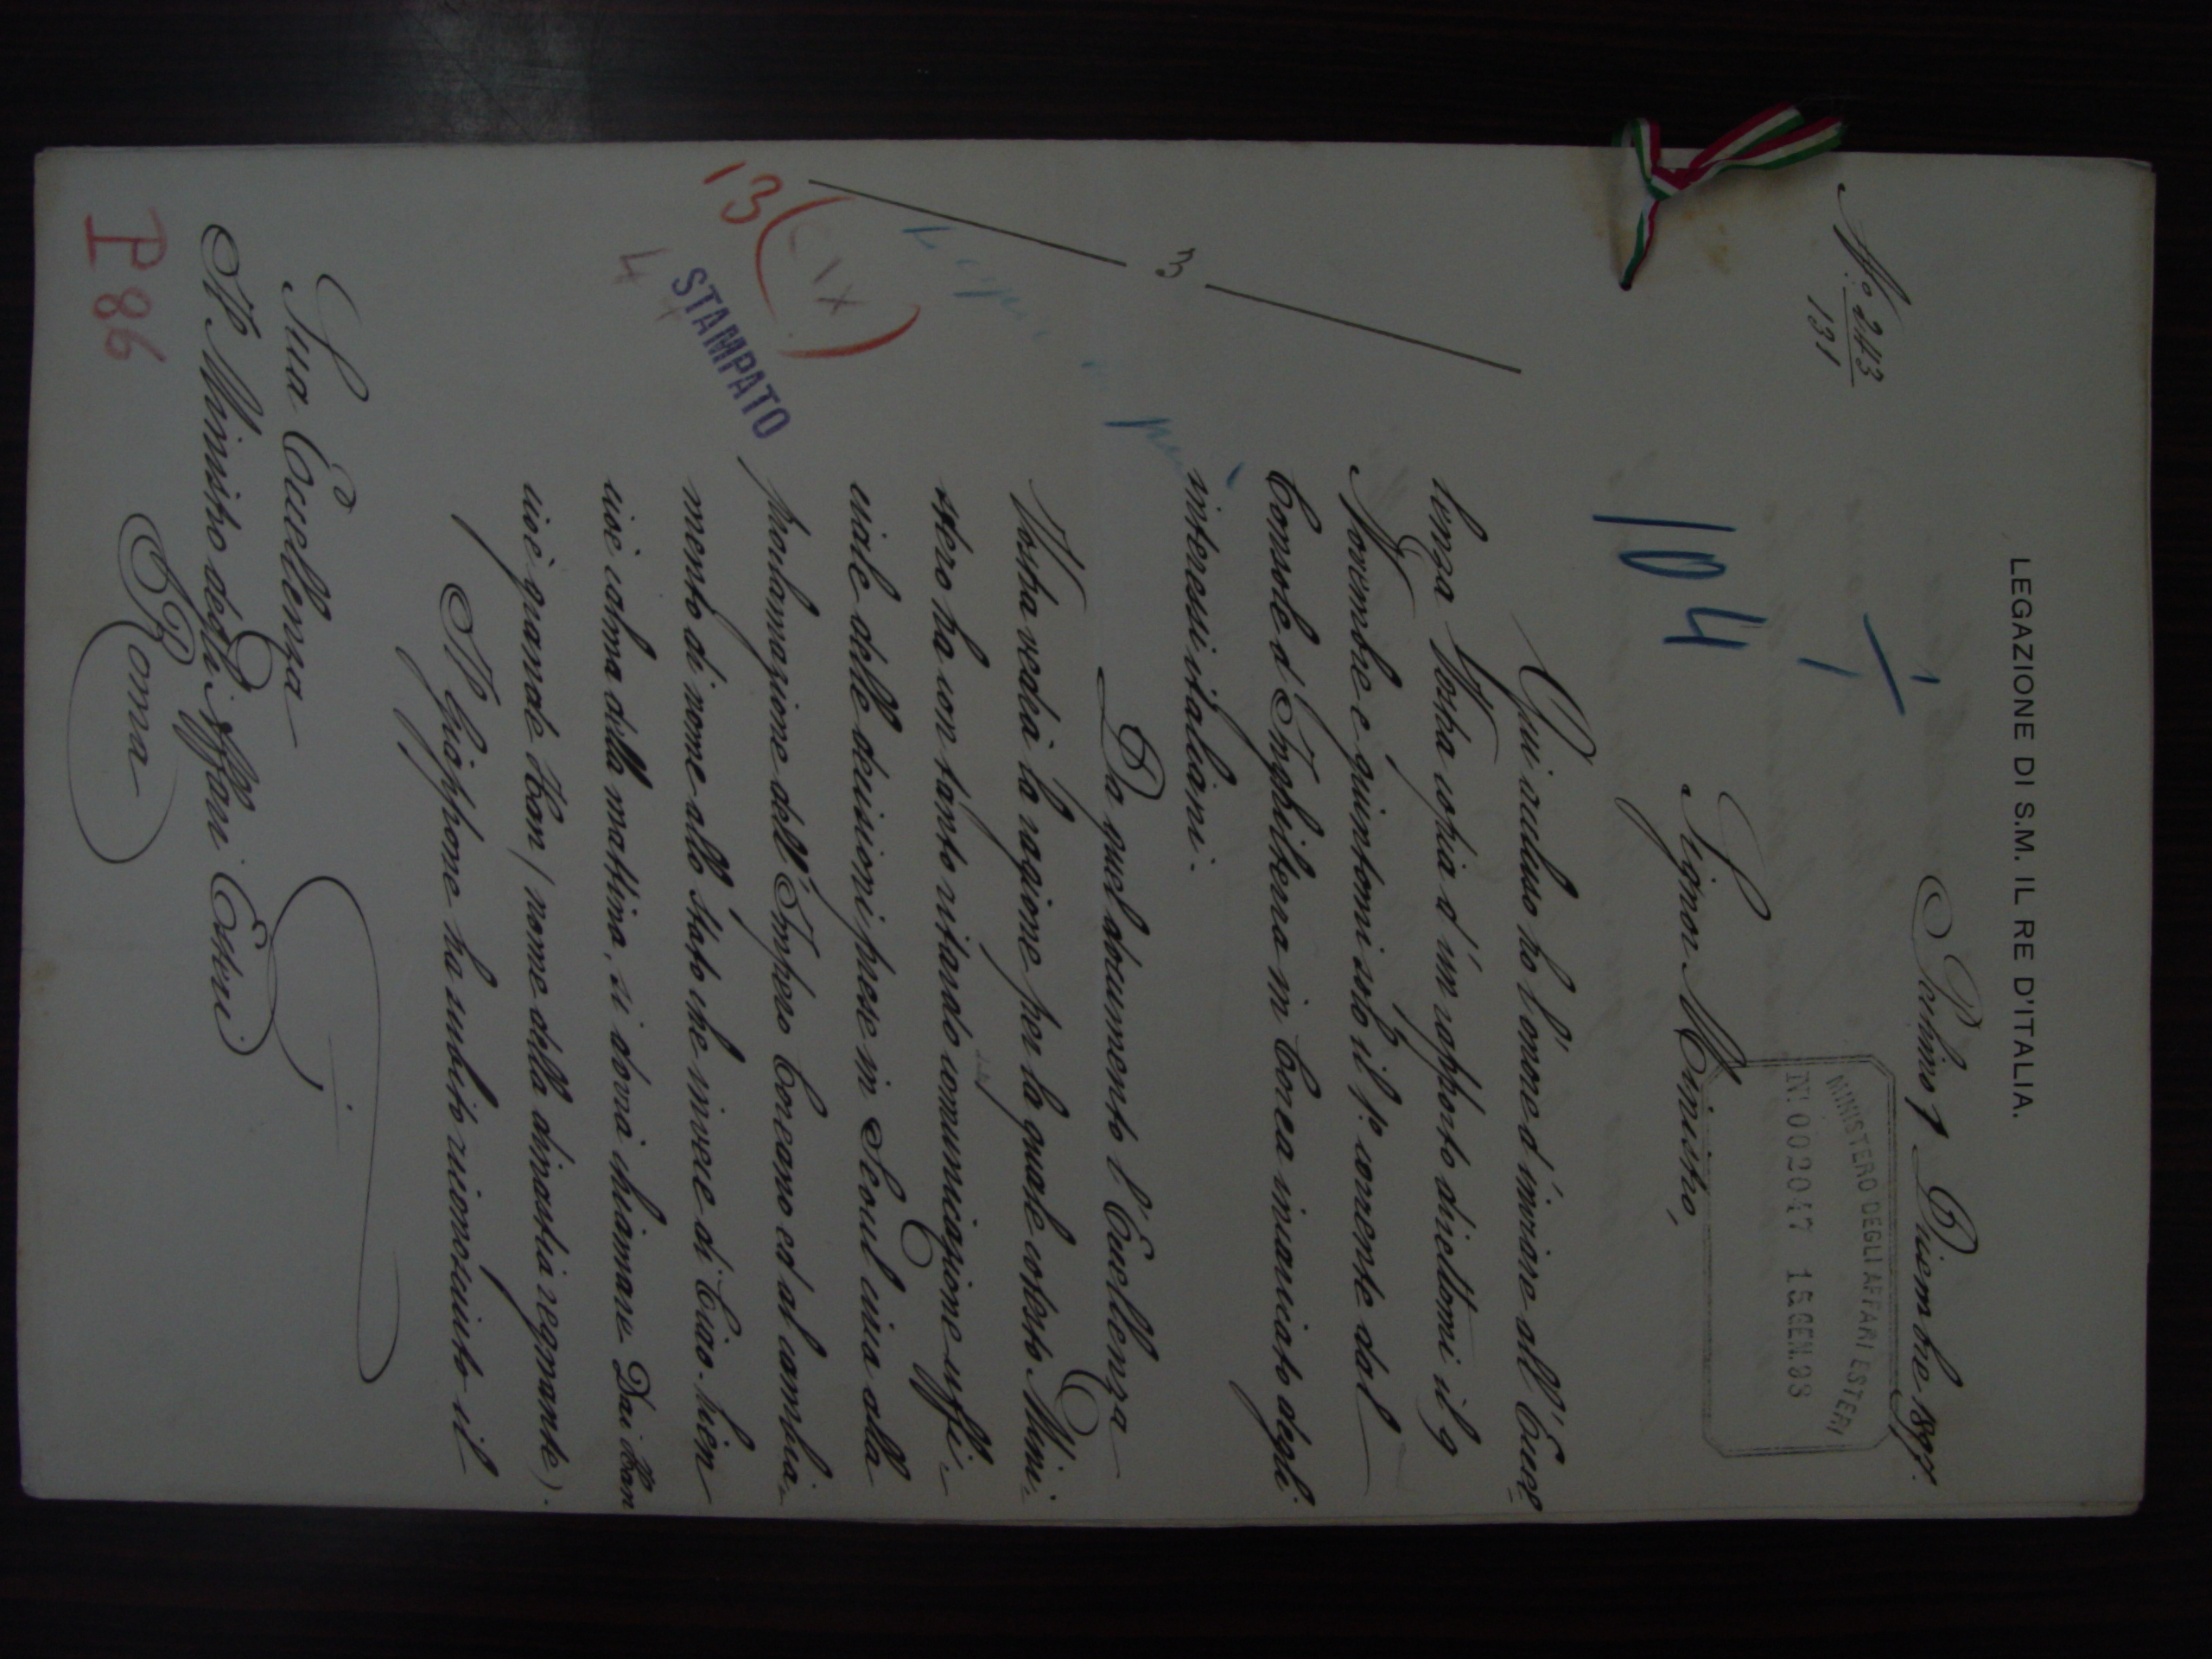 LEGAZIONE DI S.M. IL RE D'ITALIA.
Pechino 7 Dicembre 1897.
N.º 243
131
MINISTERO DEGLI AFFARI ESTERI
Nº 002047 15 GEN. 98
Signor Ministro,
104
Qui accluso ho l'onore d'inviare all'Eccel
lenza Vostra copia d'un rapporto direttomi il 9
Novembre e giuntomi solo il 1º corrente dal
Console d'Inghilterra in Corea incaricato degli
interessi italiani.
3
Da quel documento l'Eccellenza
Vostra vedrà la ragione per la quale codesto Mini-
stero ha con tanto ritardo comunicazione uffi-
ciale delle decisioni prese in Seoul circa alla
proclamazione dell'Impero Coreano ed al cambia-
mento di nome allo Stato che invece di Ciao-hien
cioè calma della mattina, si dovrà chiamare Dai Han
cioè grande Han (nome della dinastia regnante).
Il Giappone ha subito riconosciuto il
13 (IX)
4
STAMPATO
Sua Eccellenza
Il Ministro degli Affari Esteri
Roma
P 86